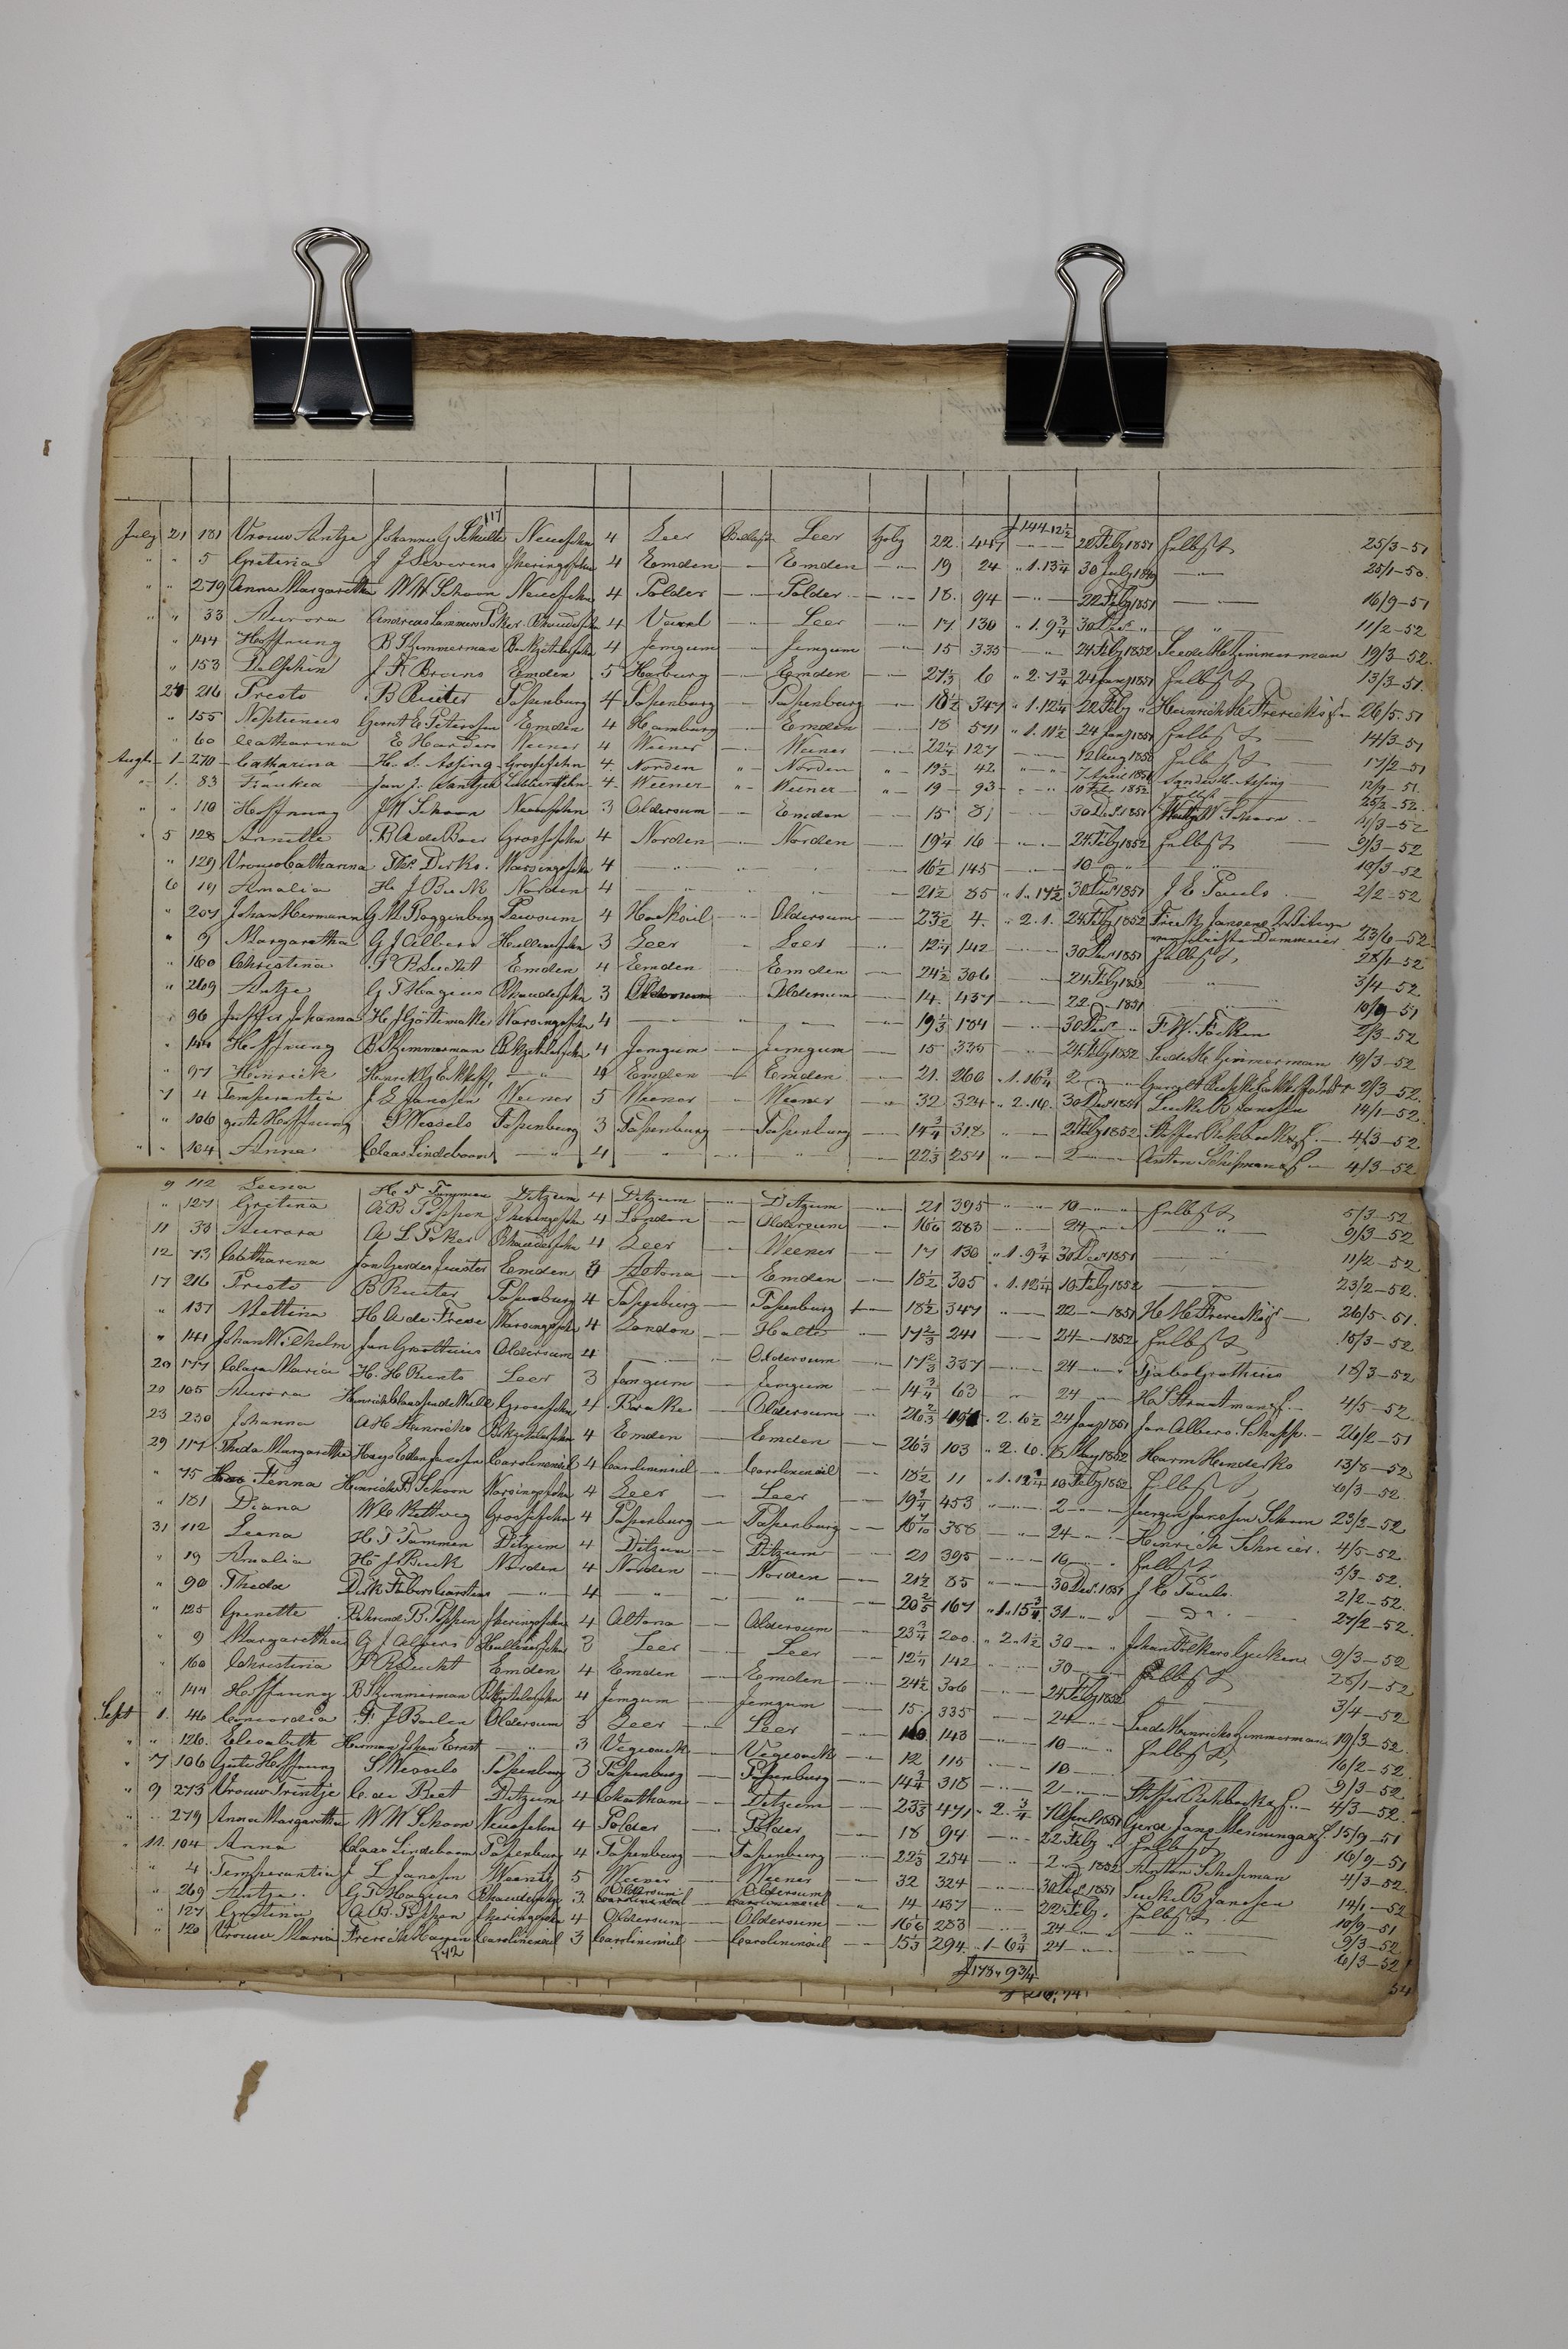 117 f 144.12½
July 21 181 Vrouw Antje Johannes G Schulte Neuefehn 4 Leer Ballast Leer 22 447 22 Feby 1851 Selbst 25/3-51
" " 5 Gretina J J Severins Jheringsfehn 4 Emden " Emden " 19 24 " 1.13¼ 30 July 1849 " 25/1-50
" " 279 Anna Margaretha W W Schoon Neuefehn 4 Polder " Polder " 18 94 " 22 Feby 1851 " 16/9-51
" " 33 Aurora Andreas Lammers Poker Rhaudefehn 4 Varel " Leer " 17 130 " 1.9¾ 30 Decr " " 11/2-52
" 144 Hoffnung B Zimmerman Bokzetelerfehn 4 Jemgum " Jemgum " 15 335 " 24 Feby 1852 Zimmerman 19/3-52
" 153 Dolphin J F Bruns Emden 5 Harburg " Emden " 27⅓ 6 " 2.7¾ 24 Jany 1851 Selbst 13/3-51
24 216 Presto B Rueter Papenburg 4 Papenburg " Papenburg " 18½ 347 " 1.12¼ 22 Feby " Heinrich H Frericks 26/5-51
" 155 Neptunus Gerrit E Peterssen Emden 4 Hamburg " Emden " 18 571 " 1.11½ 24 Jany 1851 Selbst 14/3-51
" 60 Catharina E Harders Weener 4 Weener " Weener " 22¼ 127 " 12 Aug 1850 Selbst 17/2-51
Augt 1 270 Catharina H. S. Assing Grossefehn 4 Norden " Norden " 19⅓ 42 " 7 April 1851 Assing 12/9-51
" 1. 83 Frauke Jan J. 4 Weener " Weener " 19 93 " 10 Feb. 1852 Selbst 25/2-52
" " 110 Hoffnung W Schoon Neuefehn 3 Oldersum " Emden " 15 81 " 30 Decr 1851 W Schoon 4/3-52
" 5 128 Annette B A de Boer Grossefehn 4 Norden " Norden 19¼ 16 " 24 Feby 1852 Selbst 9/3-52
" 129 Vrouw Catharina Dirks Warsingsfehn 4 " " 16½ 145 10 " 10/3-52
6 19 Amalia H J Buck Norden 4 " 21½ 85 " 1.17½ 30 Decr 1851 J E Pauls 2/2-52
" 207 Johan Hermann G M Poggenberg Pewsum 4 Hooksiel " Oldersum " 23½ 4 " 2.1. 24 Feby 1852 23/6-52
" 9 Margaretha G J Albers Hullenerfehn 3 Leer " Leer " 12 142 " 30 Decr 1851 Selbst 28/1-52
" 160 Christina P R Lucht Emden 4 Emden " Emden " 24½ 306 " 24 Feby 1852 " 3/4-52
" 269 Antje G T Hagius Rhaudefehn 3 Oldersum " Oldersum " 14 437 " 22 " 1851 " 10/9-51
" 96 Juffer Johanna H J Warsingsfehn 4 " " 19⅓ 184 " 30 Decr " F. W. Focken 2/3-52
" 144 Hoffnung B Zimmerman Bokzetelerfehn 4 Jemgum " Jemgum " 15 335 " 24 Feby 1852 Zimmerman 19/3-52
" 97 Hinrich Hinrich G Ekhoff " 4 Emden " Emden " 21 260 " 1.16¾ 2 " 2/3-52
7 4 Temperantia J E Janssen Weener 5 Weener " Weener " 32 324 " 2.16. 30 Decr 1851 Lueke B Janssen 14/1-52
" 106 gute Hoffnung S Wessels Papenburg 3 Papenburg " Papenburg " 14¾ 318 " 2 Feby 1852 Steffer Rehbock 4/3-52
" " 104 Anna Claas Lindeboom " 4 " " 22⅓ 254 " 2 " Anton Schipman 4/3-52
9 112 Leena H T Tamman Ditzum 4 Ditzum " Ditzum " 21 395 " 10 " Selbst 5/3-52
" 127 Gretina A B Poppen Jheringsfehn 4 London " Oldersum " 16⅙ 283 " 24 " " 9/3-52
11 33 Aurora A L Poker Rhaudefehn 4 Leer " Weener " 17 130 " 1.9¾ 30 Decr 1851 " 11/2-52
12 73 Catharina Jan Gerdes Juister Emden 3 Altona " Emden " 18½ 305 " 1.12¼ 10 Feby 1852 " 23/2-52
17 216 Presto B Rueter Papenburg 4 Papenburg " Papenburg " 18½ 347 " 22 " 1851 H H Frericks 26/5-51
" 137 Mettina H A de Freese Warsingsfehn 4 London " Halte " 17⅔ 241 " 24 " 1852 Selbst 15/3-52
" 141 Johan Wilhelm Jan Grotthius Oldersum 4 " Oldersum " 17⅔ 337 " 24 " Grotthius 18/3-52
20 177 Clara Maria H. H Runto Leer 3 Jemgum " Jemgum " 14¾ 63 " 24 " H S Straatman 4/5-52
20 105 Aurora Hinrich Claassen de Wall Grossefehn 4 Brake " Oldersum " 26⅔ " 2.6½ 24 Jany 1851 Jan Albers Schapp 26/2-51
23 230 Johanna A H Hinrichs Bokzetelerfehn 4 Emden " Emden " 26⅓ 103 " 2.6. May 1852 Harm Hinderks 13/8-52
29 117 Theda Margaretha Haye Eden Janssen Carolinensiel 4 Carolinensiel " Carolinensiel " 18½ 11 " 1.12¼ 10 Feby 1852 Selbst 6/3-52
" 75 Fenna Hinrich B Schoon Warsingsfehn 4 Leer " Leer " 19¾ 453 " 2 " Juergen Janssen Schoon 23/2-52
" 181 Diana W C Rettwig Grossefehn 4 Papenburg " Papenburg " 366 " 24 " Hinrich Schreier 4/5-52
31 112 Leena H T Tammen Ditzum 4 Ditzum " Ditzum " 21 395 " 10 " Selbst 5/3-52
" 19 Amalia H J Buck Norden 4 Norden " Norden " 21½ 85 " 30 Decr 1851 J E Pauls 2/2-52
" 90 Theda Dirk Folkers Carstins " 4 " " 20⅖ 167 " 1.15¾ 31 " Do 27/2-52
" 125 Grinette Behrend B. Poppen Jheringsfehn 4 Altona " Oldersum " 23¾ 200 " 2.1½ 30 " Johan Folkers 9/3-52
" 9 Margaretha G J Albers Hullenerfehn 3 Leer " Leer " 12 142 " 30 " Selbst 28/1-52
" 160 Christina P R Lucht Emden 4 Emden " Emden " 24½ 306 " 24 Feby 1852 " 3/4-52
" 144 Hoffnung B Zimmerman Bokzetelerfehn 4 Jemgum " Jemgum " 15 335 " 24 " Hinrichs Zimmerman 19/3-52
Sept 1. 46 Concordia F. J Boelen Oldersum 3 Leer " Leer " 10 143 " 10 " Selbst 16/2-52
" " 126 Elisabeth Herman Johan Ernst " 3 Vegesack " Vegesack " 12 115 " 10 " 9/3-52
" 7 106 Gute Hoffnung S Wessels Papenburg 3 Papenburg " Papenburg " 14¾ 318 " 2 " Steffer Rehbock 4/3-52
" 9 273 Vrouw Trintje C. de Beet Ditzum 4 Chatham " Ditzum " 23⅔ 471 " 2.¾ 7 April 1851 Gerd Jans Meininga 15/9-51
" " 279 Anna Margaretha W W Schoon Neuefehn 4 Polder " Polder " 18 94 " 22 Feby " Selbst 16/9-51
" 11. 104 Anna Claas Lindeboom Papenburg 4 Papenburg " Papenburg " 22⅓ 254 " 2 " 1852 Anton Schipman 4/3-52
" 4 Temperantia J E Janssen Weener 5 Weener " Weener " 32 324 " 30 Decr 1851 Lueke B Janssen 14/1-52
" 269 Antje G T Hagius Rhaudefehn 3 Oldersum " Oldersum " 14 437 " 22 Feby " Selbst 10/9-51
" 127 Gretina A B. Poppen Jheringsfehn 4 Oldersum " Oldersum " 16⅙ 283 " 24 " " 9/3-52
" 120 Vrouw Maria Frerich Carolinensiel 3 Carolinensiel " Carolinensiel " 15⅓ 294 " 1-6¾ 24 " " 6/3-52
142 f 178 " 9¾
54